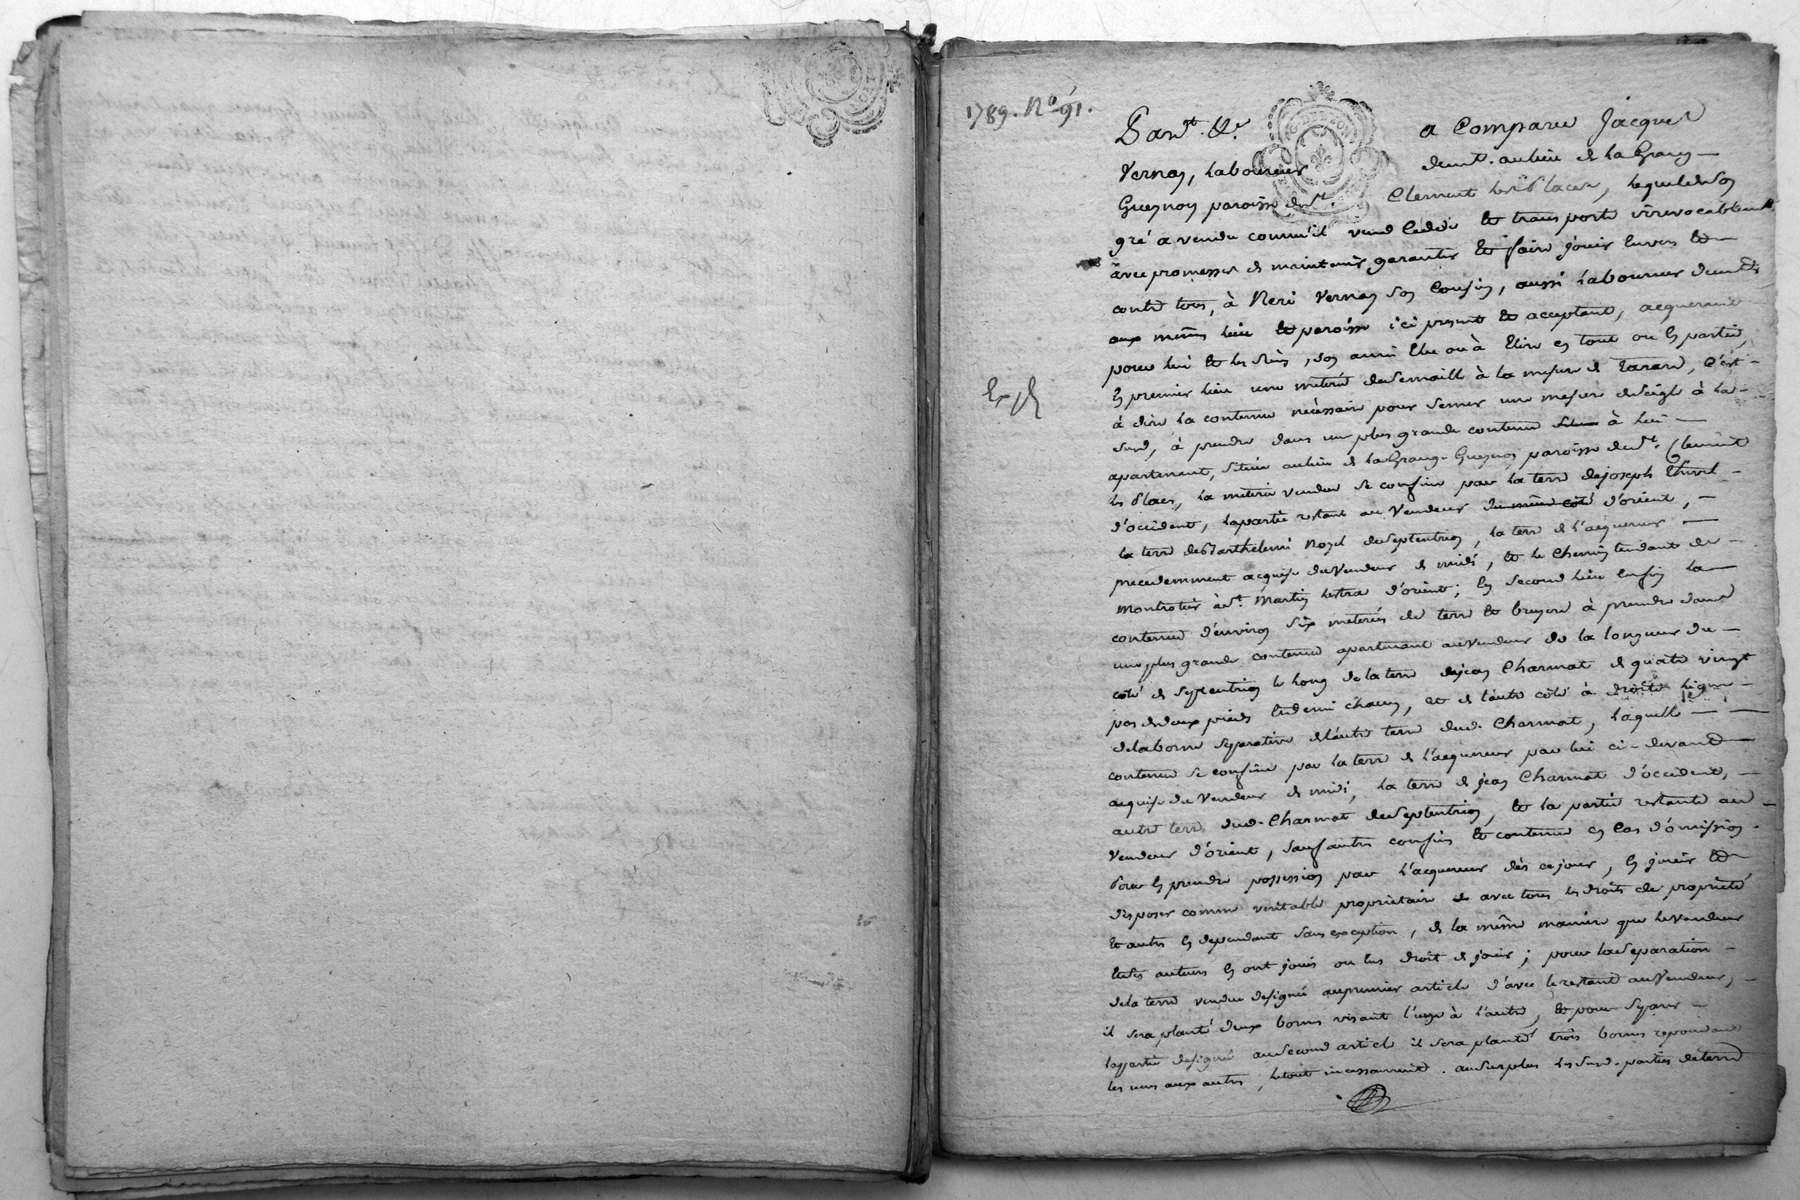 1789. N° 91.
Pardt. &c. a Comparu Jacques
Vernay, Laboureur demt. au lieu de la Grange
Guesnon paroisse de St. Clement les Places, lequel de son
gré a vendu comme il vend cede et transporte irrevocablement
avec promesses de maintenir garantir et faire jouir envers et
contre tous, à Neri Vernay son Cousin, aussi Laboureur demt.
aux mêmes lieu et paroisse ici present et acceptant, acquerant
pour lui et les siens, son ami Elu ou à Elire en tout ou en partie,
Exp.
En premier lieu une meterée de semaille à la mesure de Tarare, C'est
à dire la contenue nécéssaire pour semer une mesure de seigle à la
sud, à prendre dans une plus grande contenue à lui
apartenant, située au lieu de la Grange Guesnon paroisse de St. Clement
les Places, la meterée vendue se confine par la terre de joseph
d'occident, la partie restant au Vendeur du même côté d'orient,
la terre de Barthelemi Noyel de septentrion, la terre de l'acquereur
precedemment acquise du Vendeur de midi, et le Chemin tendant de
Montrotier à St. Martin Lestra d'orient; En second lieu Enfin la
contenue d'environ six meterées de terre et bruyere à prendre dans
une plus grande contenue apartenant au Vendeur de la longueur du
côté de septentrion le long de la terre de jean Charmat de quatre vingt
pas de deux pieds Et demi chacun, et de l'autre côté à droite ligne
de la borne separative de l'autre terre dud. Charmat, laquelle
contenue se confine par la terre de l'acquereur par lui ci-devant
acquise du Vendeur de midi, la terre de jean Charmat d'occident,
autre terre dud. Charmat de septentrion, et la partie restante au
Vendeur d'orient, sauf autres confins et contenue en Cas d'omission.
Pour En prendre possession par l'acquereur dès ce jour, En jouir et
disposer comme veritable proprietaire avec tous les droits de proprieté
et autres En dependant sans exception, de la même maniere que le Vendeur
Et ses auteurs En ont joui ou Eu droit de jouir; pour la separation
de la terre vendue designée au premier article d'avec le restant au Vendeur,
il sera planté deux bornes visant l'une à l'autre, et pour separer
la partie designée au second article il sera planté trois bornes repondant
les unes aux autres, le tout incessamment. au surplus les sud. parties de terre